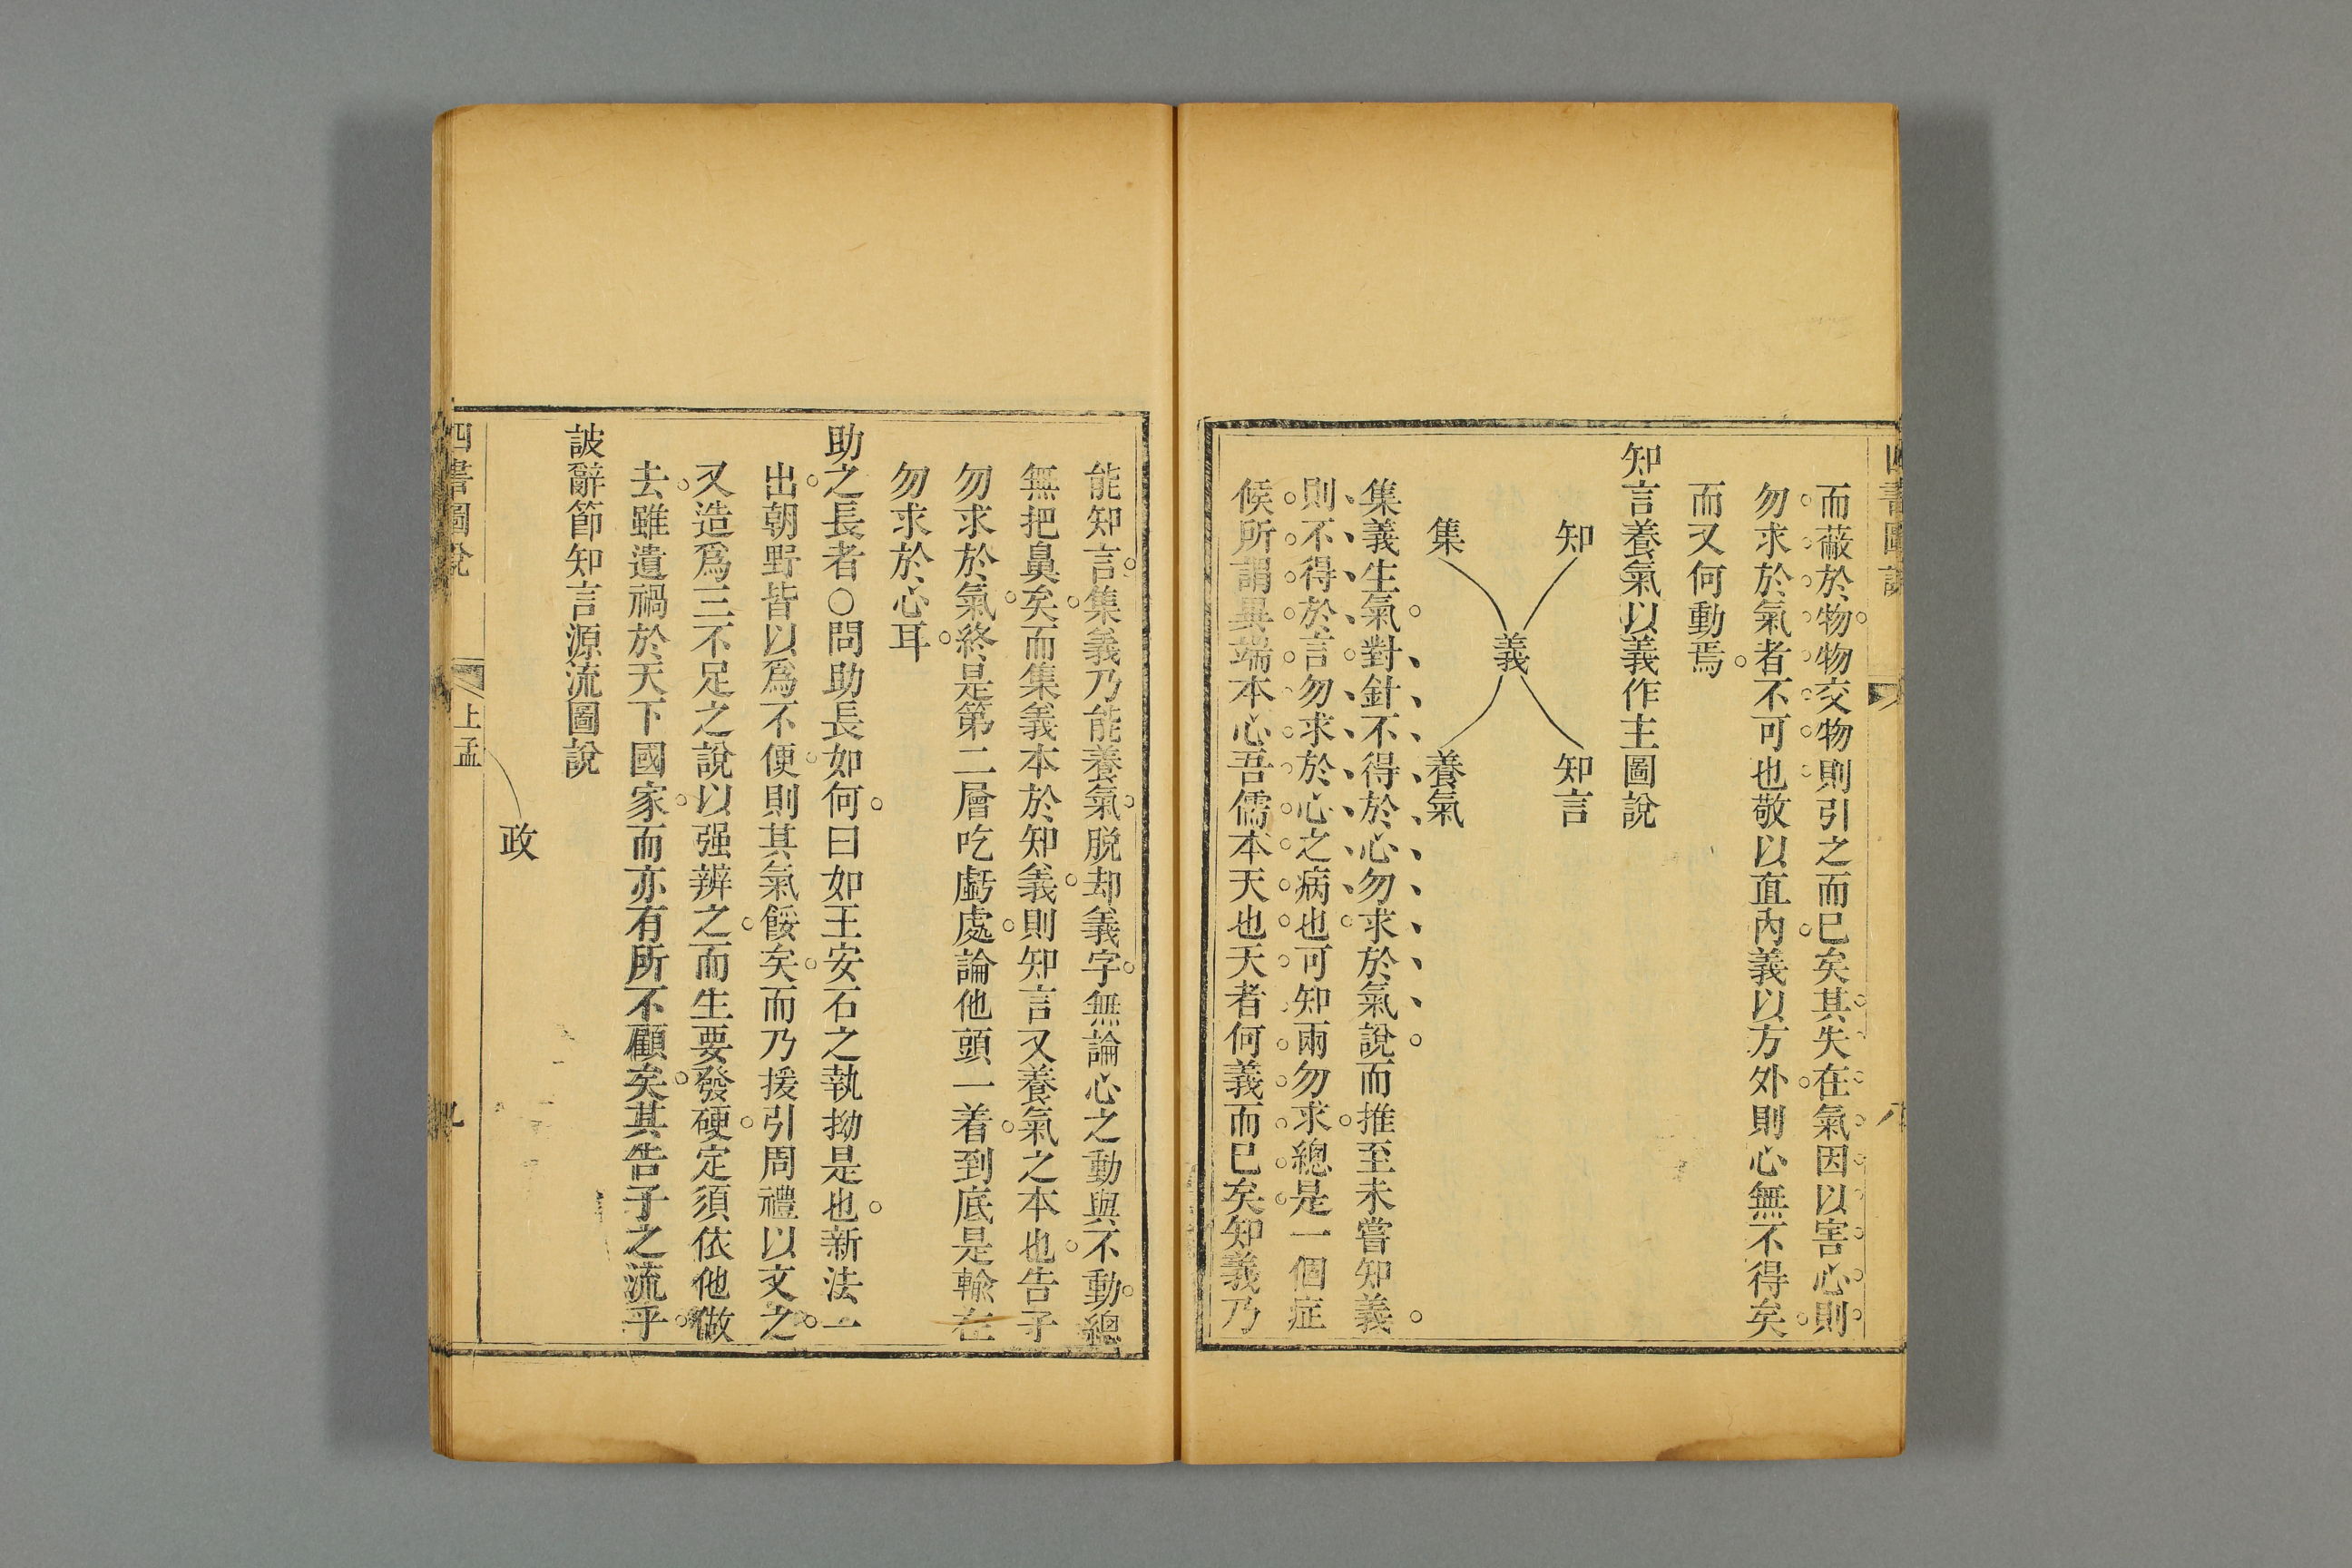 四書圖說
八
而蔽於物物交物則引之而已矣其失在氣因以害心則
勿求於氣者不可也敬以直內義以方外則心無不得矣
而又何動焉
知言養氣以義作主圖說
知
知言
義
集
養氣
集義生氣對針不得於心勿求於氣說而推至未嘗知義
則不得於言勿求於心之病也可知兩勿求總是一個症
候所謂異端本心吾儒本天也天者何義而已矣知義乃
能知言集義乃能養氣脫却義字無論心之動與不動總
無把鼻矣而集義本於知義則知言又養氣之本也告子
勿求於氣終是第二層吃虧處論他頭一着到底是輸在
勿求於心耳
助之長者○問助長如何曰如王安石之執拗是也新法一
出朝野皆以爲不便則其氣餒矣而乃援引周禮以文之
又造爲三不足之說以强辨之而生要發硬定須依他做
去雖遺禍於天下國家而亦有所不顧矣其告子之流乎
詖辭節知言源流圖說
政
四書圖說
上孟
九